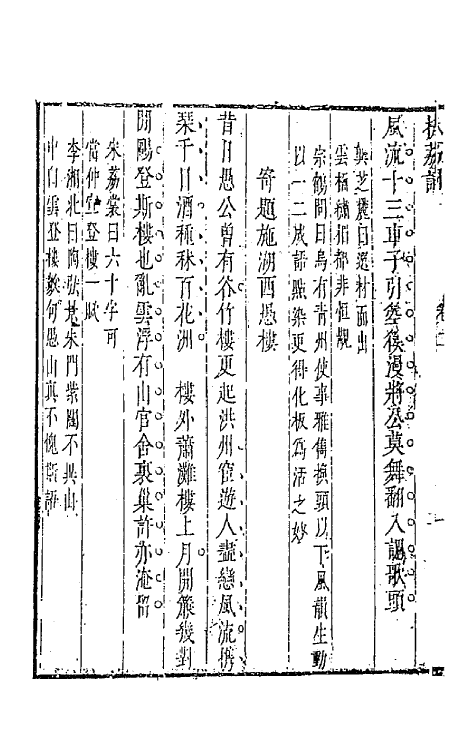 扶荔詞 卷二
風流十三車子引箜篌漫將公莫舞翻入謳歌頭
龔芝麓曰選材而出
雲楯都非恒觀
宗鶴問曰烏有青州使事雅雋換頭以下風韻生動
以一二成語點染更得化板爲活之妙
寄題施湖西愚樓
昔日愚公曾有谷竹樓更起洪州宦遊人盡戀風流攜
琴千日酒種秫百花洲　樓外蕭灘樓上月開簾幾對
開陽登斯樓也亂雲浮有山官舍裏巢許亦淹留
宋荔裳曰六十字可
當仲宣登樓一賦
李湘北曰陶弘景朱門紫闥不異山
中白雲登樓數句愚山真不愧斯語